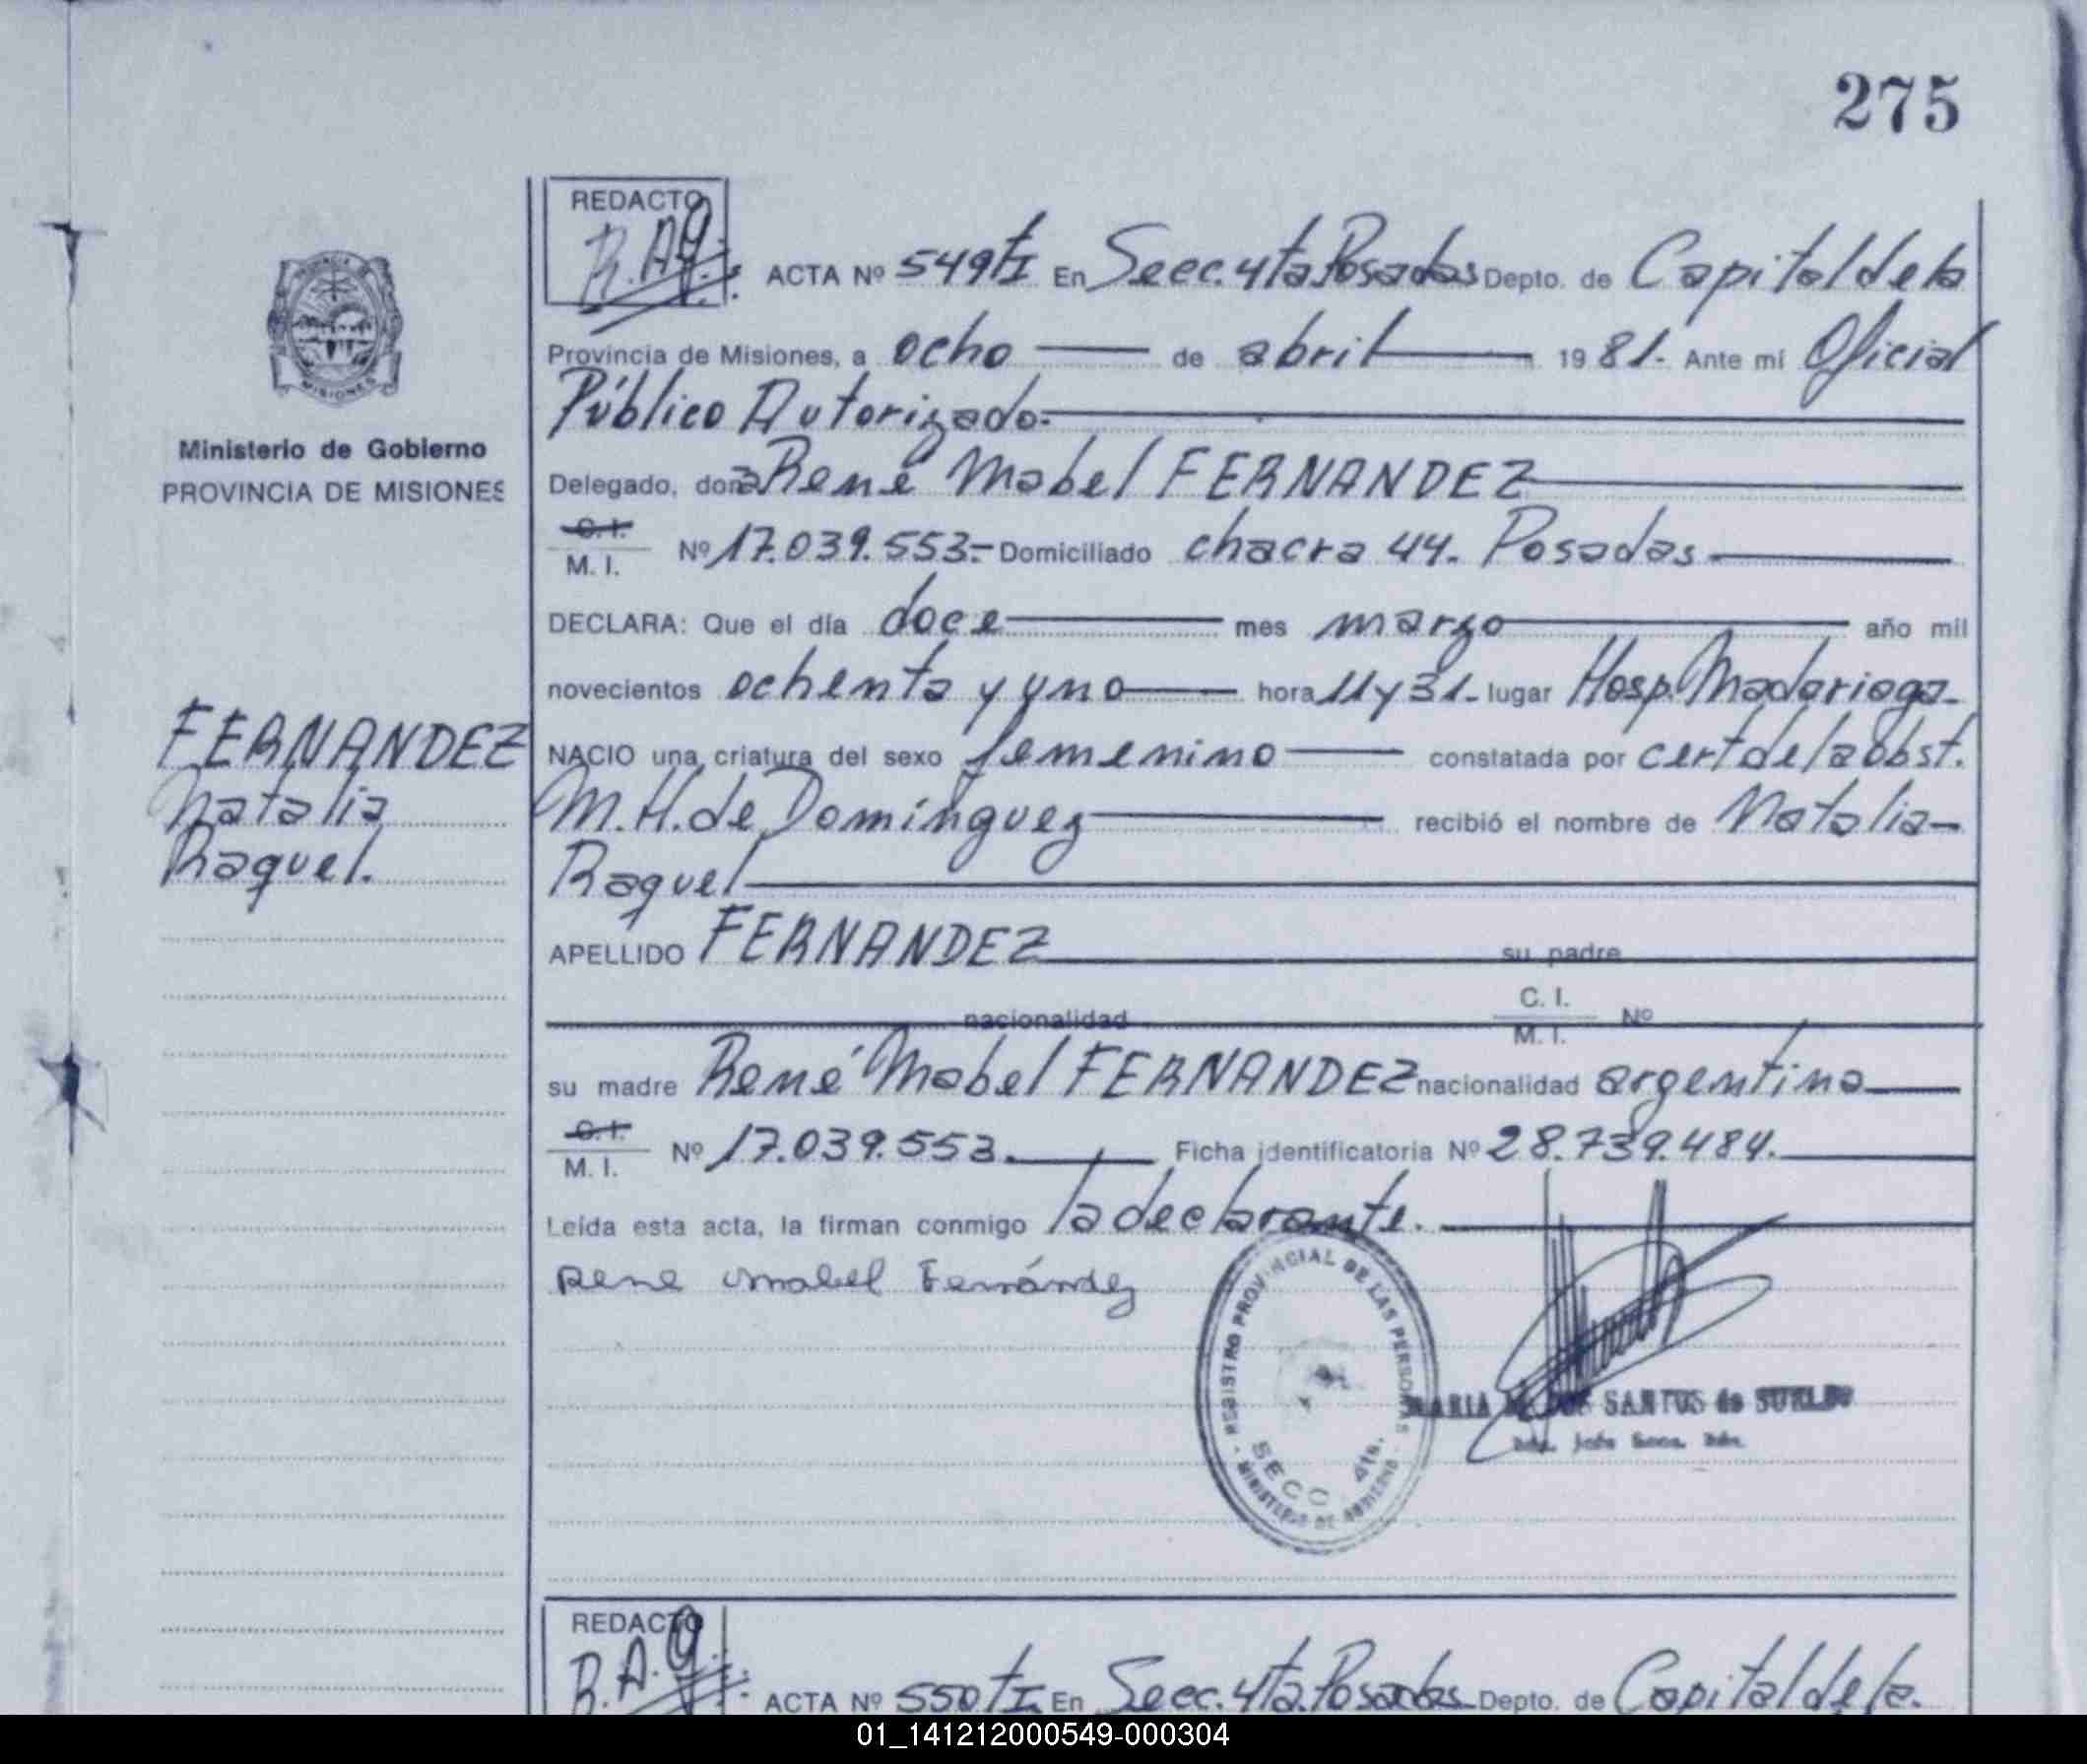 275
REDACTO
R.A.G.
ACTA Nº 549 tI En Secc. 4ta. Posadas Depto. de Capital de la
Provincia de Misiones, a ocho de abril 1981.- Ante mí Oficial
Público Autorizado.-
Delegado, doña René Mabel FERNANDEZ
C. I.
M. I. Nº 17.039.553.- Domiciliado chacra 44. Posadas.
DECLARA: Que el día doce mes marzo año mil
novecientos ochenta y uno hora 11 y 31.- lugar Hosp. Madariaga.
NACIO una criatura del sexo femenino constatada por cert de la obst.
M.H. de Domínguez recibió el nombre de Natalia-
Raquel
APELLIDO FERNANDEZ su padre
nacionalidad C. I. M. I. Nº
su madre René Mabel FERNANDEZ nacionalidad argentina
C. I.
M. I. Nº 17.039.553. Ficha identificatoria Nº 28.739.484.
Leída esta acta, la firman conmigo la declarante.
Rene Mabel Fernández
MISIONES
Ministerio de Gobierno
PROVINCIA DE MISIONES
FERNANDEZ
Natalia
Raquel.
REGISTRO PROVINCIAL DE LAS PERSONAS
SECC 4ta.
MINISTERIO DE GOBIERNO
MARIA SANTOS de
REDACTO
R.A.G.
ACTA Nº 550 tI En Secc. 4ta. Posadas Depto. de Capital de la.
01_141212000549-000304